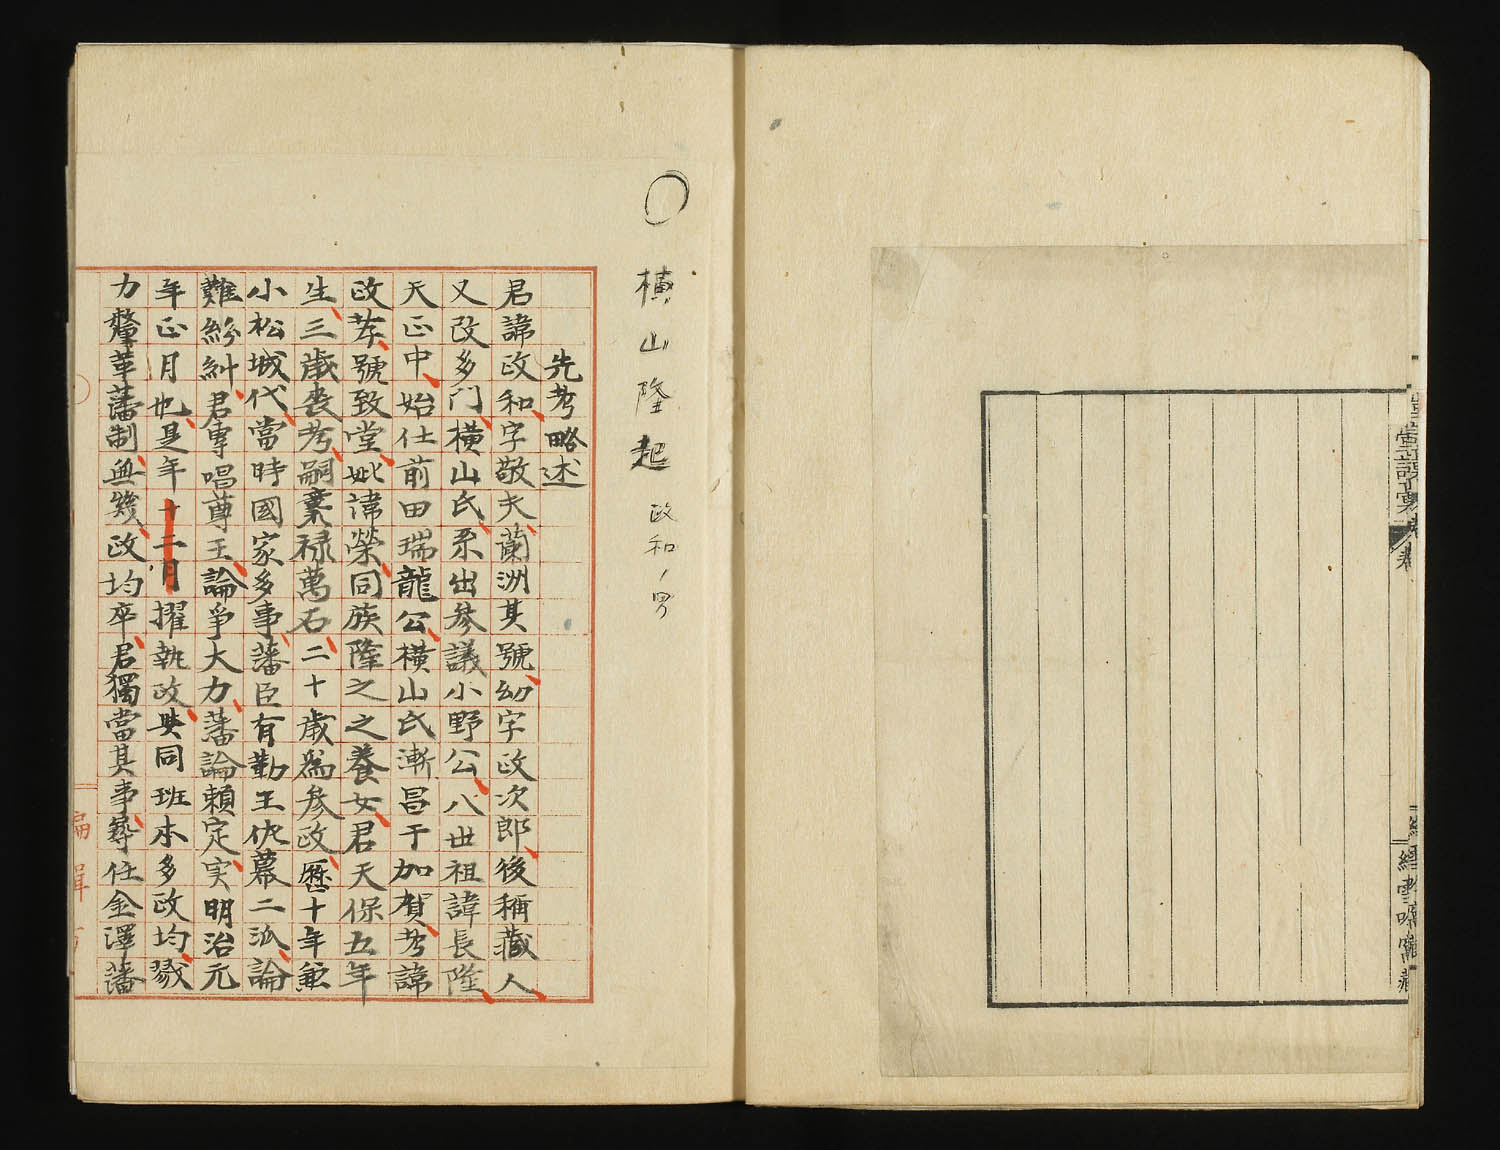 橫山隆起 政和ノ男
先考略述
君諱政和字敬夫蘭洲其號幼字政次郎後稱藏人
又改多门橫山氏系出參議小野公八世祖諱長隆
天正中始仕前田瑞龍公橫山氏漸昌于加賀考諱
政孝號致堂妣諱榮同族隆之之養女君天保五年
生三歲喪考嗣業祿萬石二十歲為參政歷十年兼
小松城代當時國家多事藩臣有勤王佐幕二派論
難紛糾君專唱尊王論爭大力藩論賴定实明治元
年正月也是年十二月擢執政與同班本多政均戮
力釐革藩制無幾政均卒君獨當其事尋任金澤藩